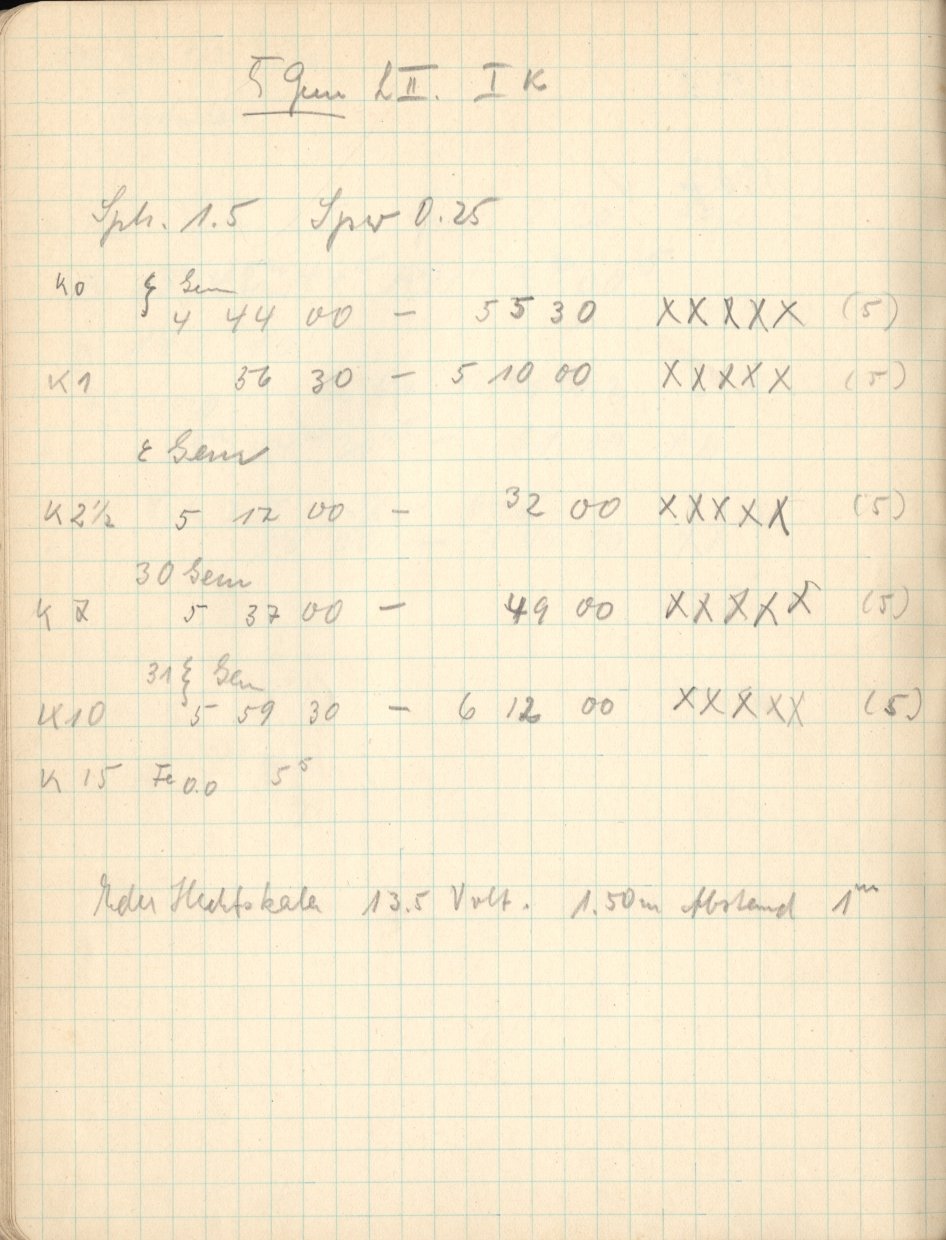 ζ Gem L II. I K
Sph. 1.5 Spw 0.25
K0 ζ Gem
4 44 00 — 5 5 30 XXXXX (5)
K1 56 30 — 5 10 00 XXXXX (5)
ε Gem
K 2½ 5 12 00 — 32 00 XXXXX (5)
30 Gem
K 5 37 00 — 49 00 XXXXX (5)
31 ξ Gem
K10 5 59 30 — 6 12 00 XXXXX (5)
K 15 Fe 0.0 5⁵
Eder Hechtskala 13.5 Volt. 1.50m Abstand 1ᵐ